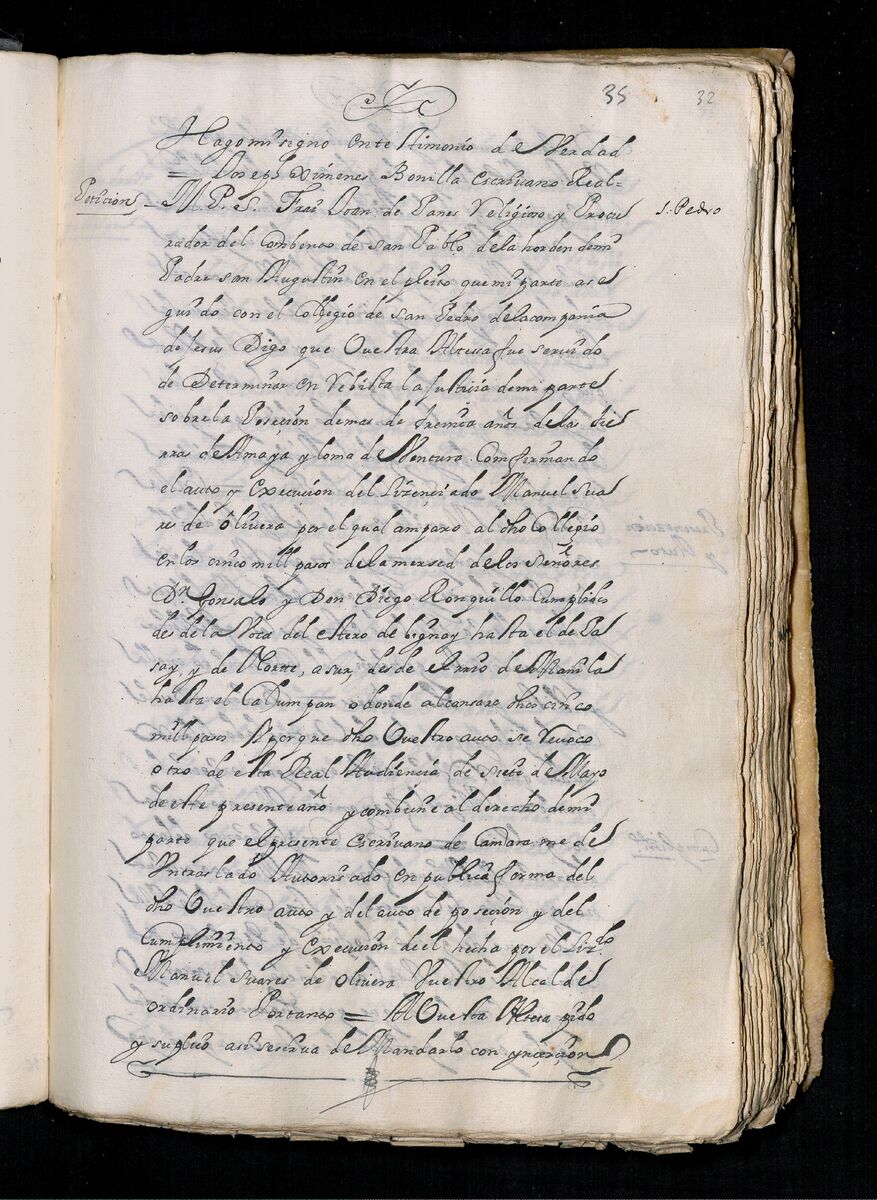 35 32
Hago mi signo en testimonio de Verdad
= Joseph Ximenes Bonilla escrivano Real-
Peticion – M. P. S. Frai Joan de Panes Religioso y Procu S. Pedro
rador del Combento de san Pablo de la horden de mi
Padre san Augustin en el pleito que mi parte a se
guido con el Collegio de san Pedro de la compañia
de Jesus Digo que Vuestra Altessa fue servido
de Determinar en Rebista la justicia de mi parte
sobre la Poseçion de mas de treinta añs de las tie
rras de Amaya y loma de Ventura. Comfirmando
el auto y execucion del Lizençiado Manuel Sua
res de Olivera por el qual amparo al dho Collegio
en los cinco mill pasos de la mersed de los señores
Dn Gonsalo y Don Diego Ronquillo Cumplidos
desde la Voca del estero de bignay hasta el de Pa
say, y de Norte, a sur, desde el rrio de Manila
hasta el Cadumpan o donde alcansare dhos cinco
mill pasos. A por que dho Vuestro auto se Revoco
otro de esta Real Audiencia de siete de Mayo
de este presente añ y combiene al derecho de mi
parte que el presente Escrivano de Camara me de
Un traslado Autorisado en publica forma del
dho Vuestro auto y del auto de poseçion y del
Cumplimiento y execucion de el hecha por el Lizdo
Manuel suares de Olivera Vuestro Alcalde
ordinario Por tanto = A Vuestra Altesa pido
y suplico asi se sirva de Mandarlo con ynserçion